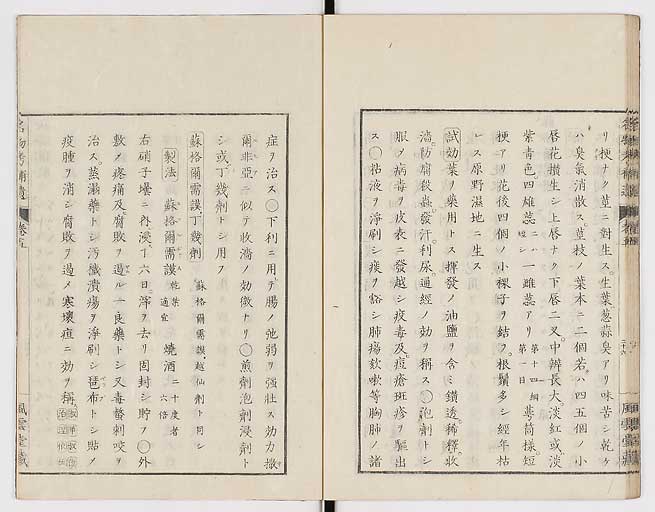 リ梗ナク莖ニ對生ス。生葉葱蒜臭アリ味苦シ乾ケ
ハ臭氣消散ス莖枝ノ葉末ニ二個若ハ四五個ノ小
唇花攅生シ上唇ナク下唇二叉中瓣長大淡紅或淡
紫青色四雄蕊二ハ短シ一雌蕊アリ第十四綱第一目蕚筒様短
梗アリ花後四個ノ小稞子ヲ結フ。根鬚多シ經年枯
レス原野濕地ニ生ス
試効葉ヲ藥用トス揮發ノ油鹽ヲ含ミ鑽透稀釋收
濇防腐殺蟲發汗利尿通經ノ効ヲ稱ス○泡劑トシ
服メ病毒ヲ皮表ニ發越シ疫毒及痘瘡斑疹ヲ驅出
ス○粘液ヲ淨刷シ痰ヲ豁シ肺瘍欬嗽等胸肺ノ諸
症ヲ治ス○下利ニ用テ腸ノ弛弱ヲ强壮ス効力撒
爾非亞ニ似テ收濇ノ効微トリ○煎劑泡劑浸劑ト
シ或丁幾劑トシ用フ
蘇格爾需謨丁幾劑 蘇格爾需謨、越仙劑ト同シ
製法 蘇格爾需謨乾葉適宜 燒酒二十度者六倍
右硝子壜ニ内浸ス六日、滓ヲ去リ固封シ貯フ○外
敷メ疼痛及腐敗ヲ遏ル一良藥トシ又毒螫刺咬ヲ
治ス。蒸溻藥トシ汚穢潰瘍ヲ淨刷シ琶布トシ貼メ
疫腫ヲ消シ腐敗ヲ遏メ寒壊疽ニ効ヲ稱
名物考補遺 卷五
風雲堂藏